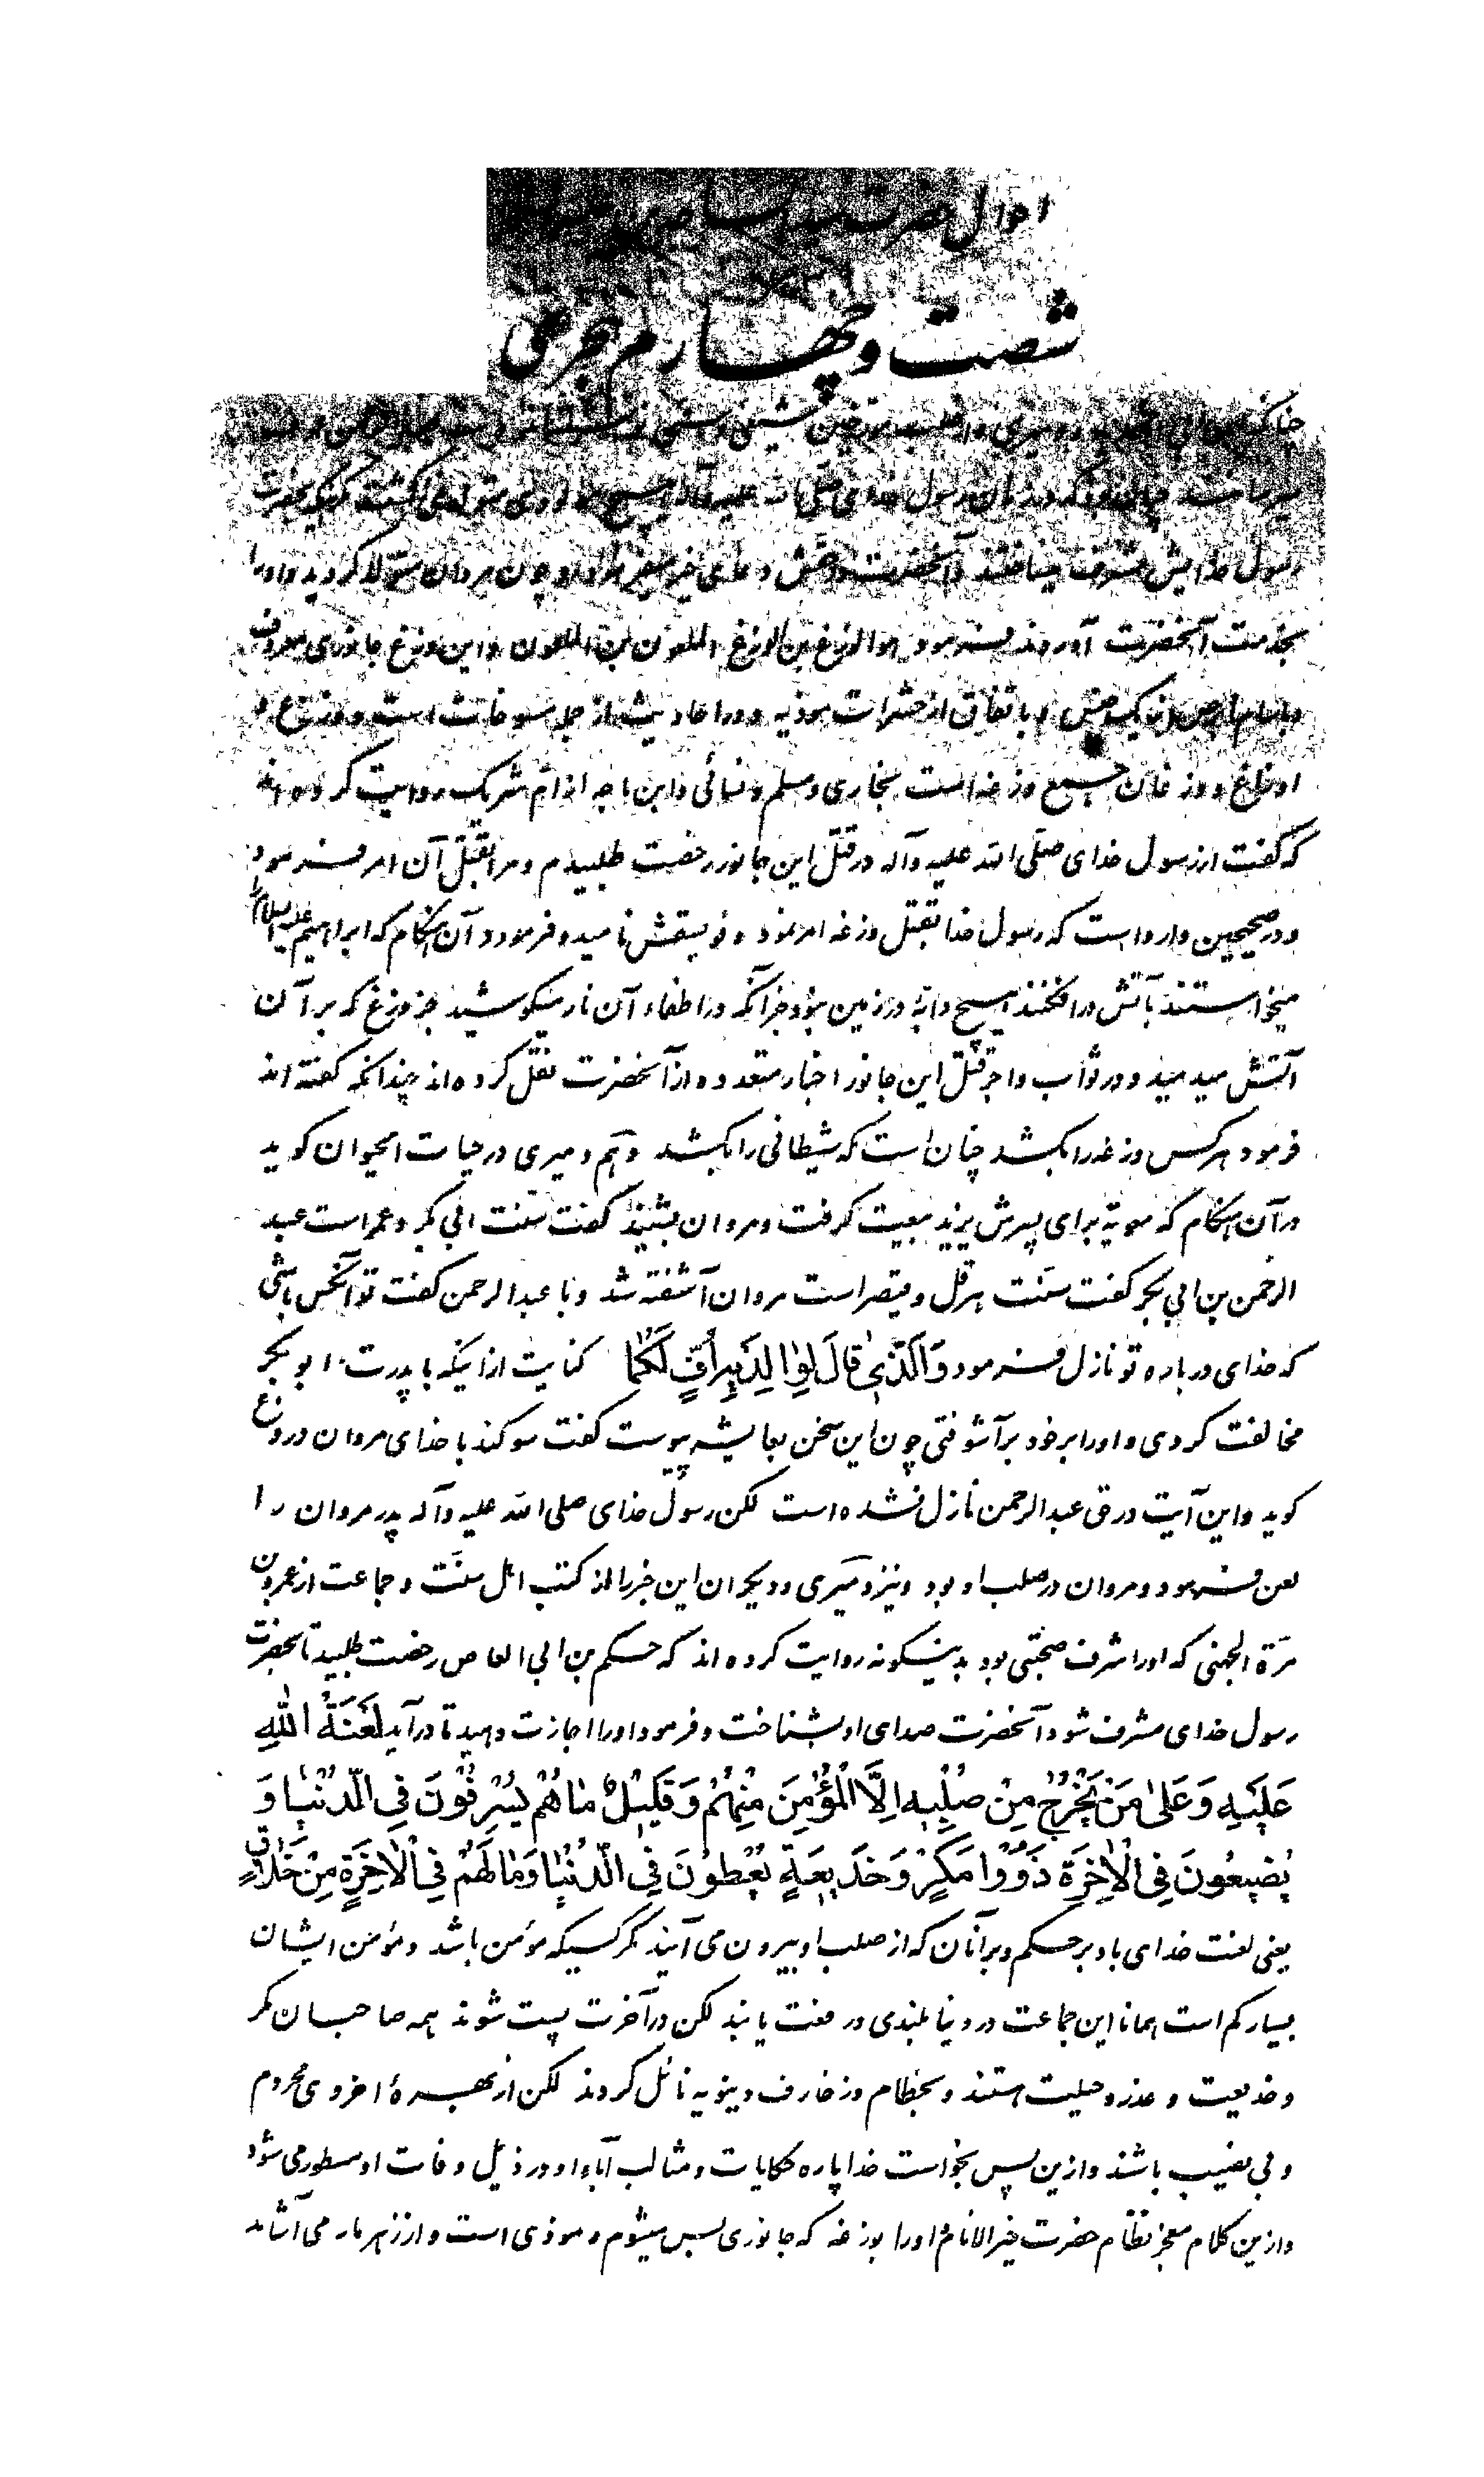 احوال حضرت سید الساجدین
شصت و چهارم هجری
چنانکه ابن و دمیری و مورخین شیعی و سنی
میرسانند چنان بود که در زمان رسول خدای صلی الله علیه وآله هیچ مولودی متولد نمی‌گشت مگر اینکه بحضرت
رسول خدایش مشرف میساختند و آنحضرت در حقش دعای خیر میفرمود و چون مروان متولد گردید و او را
بخدمت آنحضرت آوردند فرمود هو الوزغ بن الوزغ الملعون بن الملعون و این وزغ جانوری معروف
و با سام ابرص از یک جنس و باتفاق از حشرات موذیه و در احادیث از جمله فسوفات است و وزغ و
اوزاغ و وزغان جمیع وزغه است بخاری و مسلم و نسائی و ابن ماجه از ام شریک روایت کرده‌اند
که گفت از رسول خدای صلی الله علیه وآله در قتل این جانور رخصت طلبیدم و مرا بقتل آن امر فرمود
و در صحیحین وارد است که رسول خدا بقتل وزغه امر نمود و فویسقش نامید و فرمود در آن هنگام که ابراهیم علیه السلام را
میخواستند بآتش در افکنند هیچ دابه در زمین نبود جز آنکه در اطفاء آن نار میکوشید جز وزغ که بر آن
آتش میدمید و در ثواب و اجر قتل این جانور اخبار متعدده از آنحضرت نقل کرده‌اند چندانکه گفته‌اند
فرمود هرکس وزغه را بکشد چنان است که شیطانی را بکشد و هم دمیری در حیات الحیوان گوید
در آن هنگام که معویة برای پسرش یزید بیعت گرفت و مروان بشنید گفت سنت ابی بکر و عمر است عبد
الرحمن بن ابی بکر گفت سنت هرقل و قیصر است مروان آشفته شد و با عبد الرحمن گفت تو آنکس باشی
که خدای درباره تو نازل فرمود وَالَّذی قالَ لِوالِدَیْهِ اُفٍّ لَکُما کنایت از اینکه با پدرت ابو بکر
مخالفت کردی و او را بر خود بر آشوفتی چون این سخن بعایشه پیوست گفت سوگند با خدای مروان دروغ
گوید و این آیت در حق عبد الرحمن نازل نشده است لکن رسول خدای صلی الله علیه وآله پدر مروان را
لعن فرمود و مروان در صلب او بود و نیز دمیری و دیگران این خبر را از کتب اهل سنت و جماعت از عمرو بن
مرة الجهنی که او را شرف صحبتی بود بدینگونه روایت کرده‌اند که حکم بن ابی العاص رخصت طلبید تا بحضرت
رسول خدای مشرف شود آنحضرت صدای او بشناخت و فرمود او را اجازت دهید تا درآید لَعْنَةُ اللهِ
عَلَیْهِ وَعَلیٰ مَنْ یَخْرُجُ مِنْ صُلْبِهِ اِلَّا الْمُؤْمِنَ مِنْهُمْ وَقَلیلٌ ماهُمْ یُسْرِفُونَ فِی الدُّنْیا وَ
یُضیعُونَ فِی الْاٰخِرَةِ ذَوُوا مَکْرٍ وَخَدیعَةٍ یُعْطَوْنَ فِی الدُّنْیا وَمالَهُمْ فِی الْاٰخِرَةِ مِنْ خَلاقٍ
یعنی لعنت خدای باد بر حکم و بر آنان که از صلب او بیرون می آیند مگر کسیکه مؤمن باشد و مؤمن ایشان
بسیار کم است همانا این جماعت در دنیا بلندی و رفعت یابند لکن در آخرت پست شوند همه صاحبان مکر
و خدیعت و غدر و حیلت هستند و بحطام و زخارف دنیویه نائل گردند لکن از بهرهٔ اخروی محروم
و بی نصیب باشند و ازین پس بخواست خدا پاره حکایات و مثالب آباء او در ذیل وفات او مسطور می شود
و ازین کلام معجز نظام حضرت خیر الانام او را بوزغه که جانوری بس میشوم و موذی است و از زهر مار می آشامد